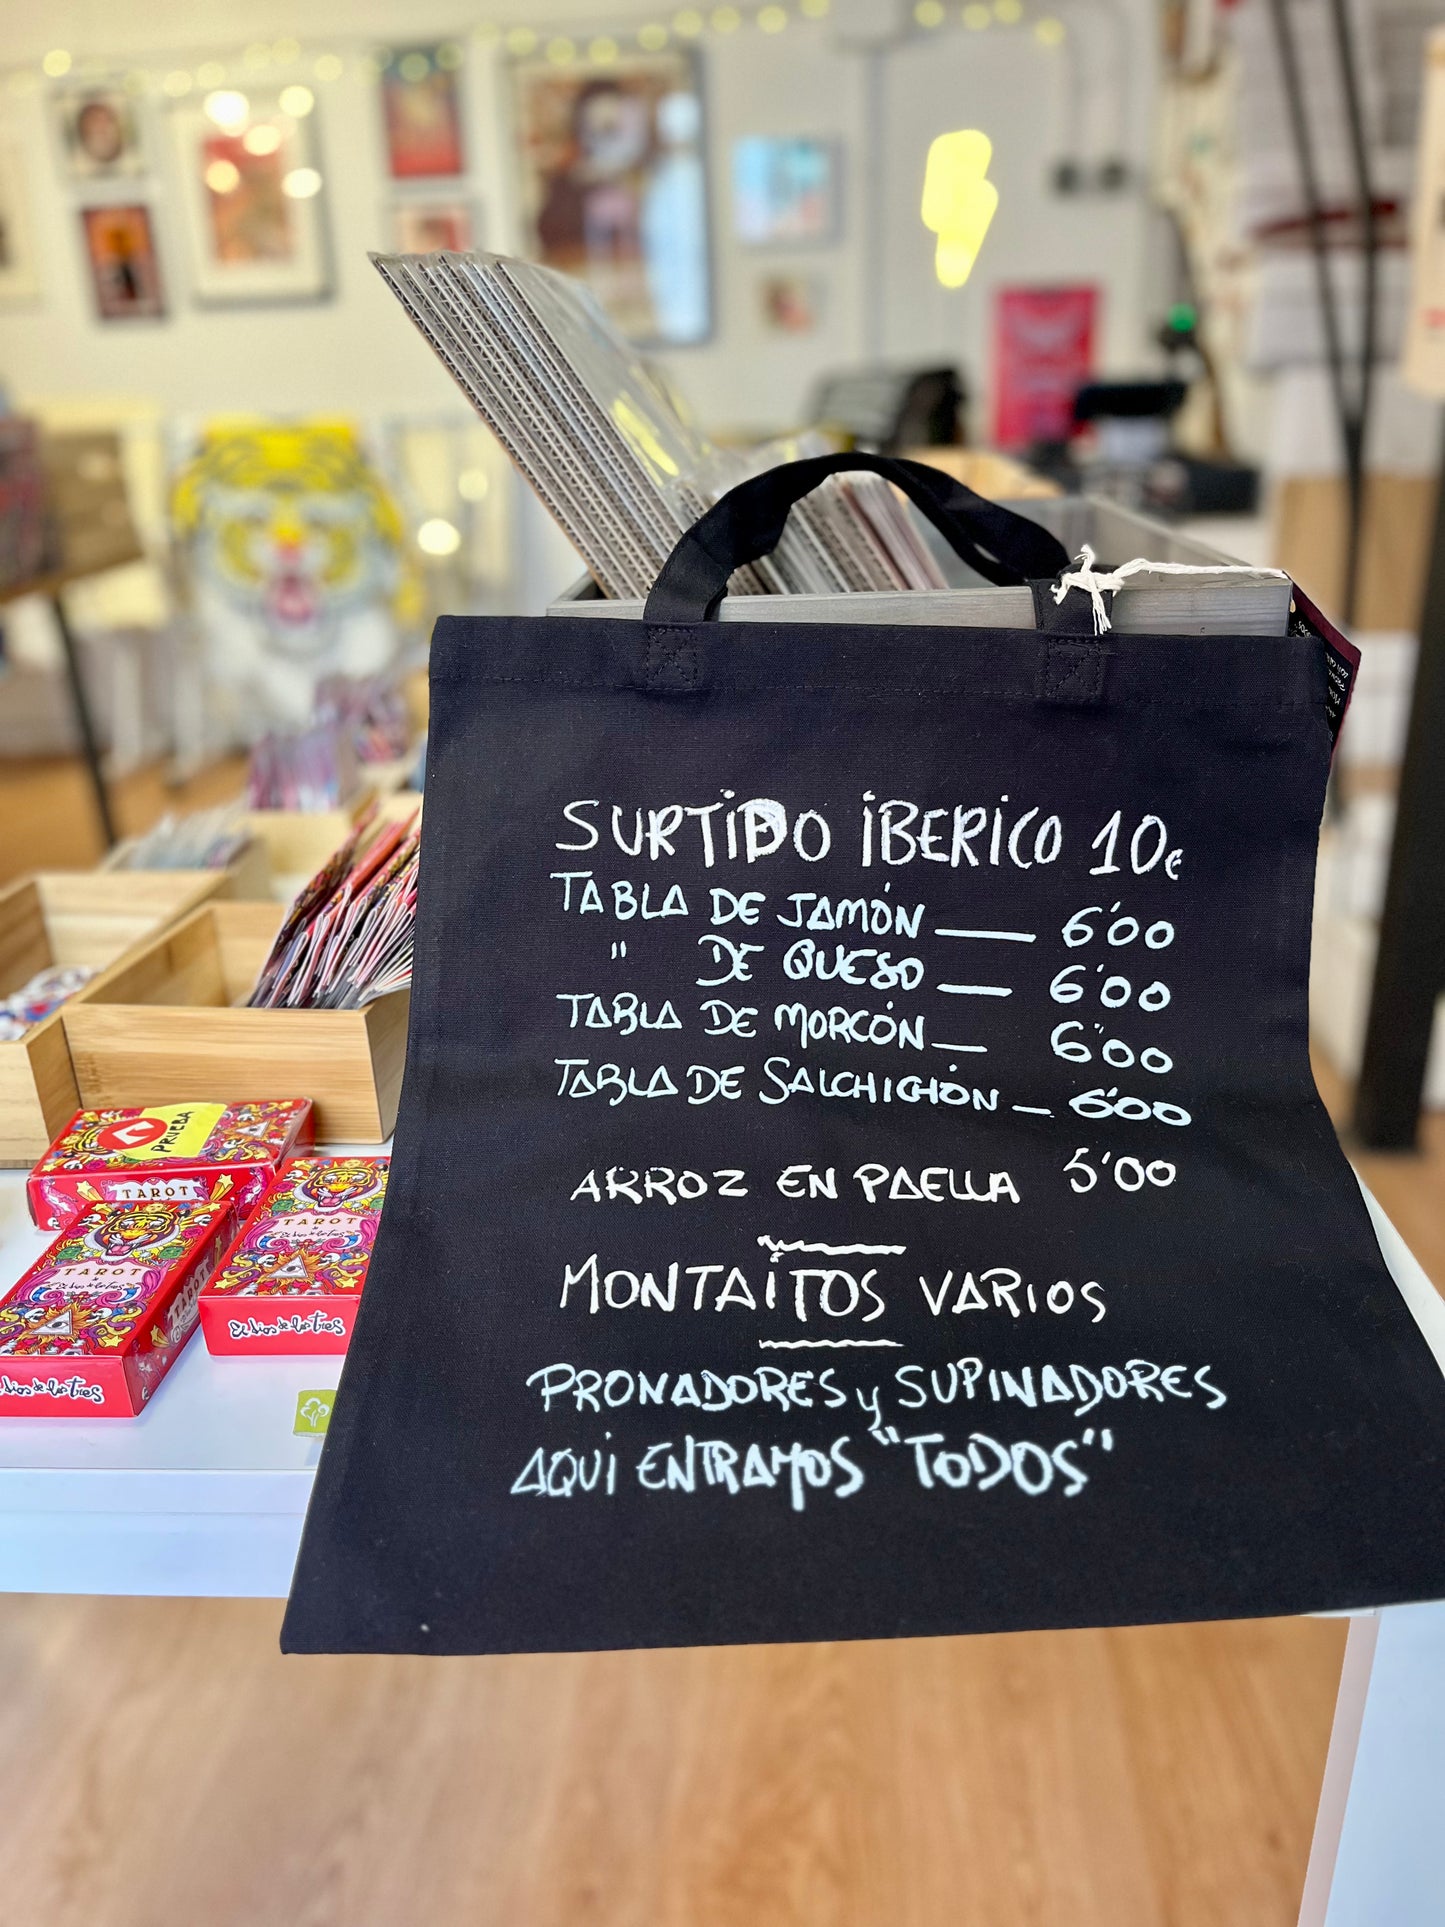 SURTIDO IBERICO 10€
TABLA DE JAMÓN — 6'00
" DE QUESO — 6'00
TABLA DE MORCÓN — 6'00
TABLA DE SALCHICHÓN — 6'00
ARROZ EN PAELLA 5'00
MONTAITOS VARIOS
PRONADORES y SUPINADORES
AQUI ENTRAMOS "TODOS"
PRUEBA
TAROT
TAROT
El dios de los tres
TAROT
El dios de los tres
TAROT
El dios de los tres
dios de los tres